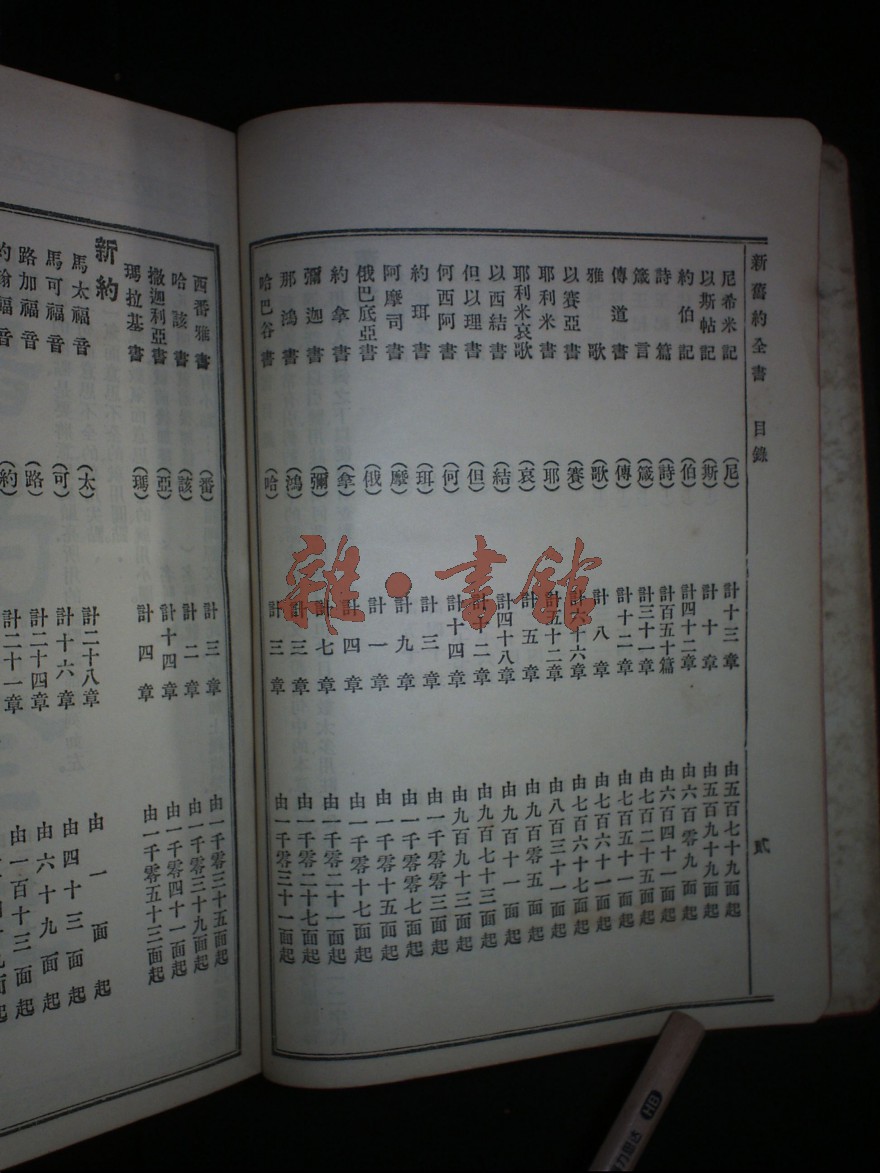 新舊約全書 目錄 貳
尼希米記 (尼) 計十三章 由五百七十九面起
以斯帖記 (斯) 計十章 由五百九十九面起
約伯記 (伯) 計四十二章 由六百零九面起
詩篇 (詩) 計百五十篇 由六百四十一面起
箴言 (箴) 計三十一章 由七百二十五面起
傳道書 (傳) 計十二章 由七百五十一面起
雅歌 (歌) 計八章 由七百六十一面起
以賽亞書 (賽) 計六十六章 由七百六十七面起
耶利米書 (耶) 計五十二章 由八百三十一面起
耶利米哀歌 (哀) 計五章 由九百零五面起
以西結書 (結) 計四十八章 由九百十一面起
但以理書 (但) 計十二章 由九百七十三面起
何西阿書 (何) 計十四章 由九百九十三面起
約珥書 (珥) 計三章 由一千零零三面起
阿摩司書 (摩) 計九章 由一千零零七面起
俄巴底亞書 (俄) 計一章 由一千零十五面起
約拿書 (拿) 計四章 由一千零十七面起
彌迦書 (彌) 計七章 由一千零二十一面起
那鴻書 (鴻) 計三章 由一千零二十七面起
哈巴谷書 (哈) 計三章 由一千零三十一面起
西番雅書 (番) 計三章 由一千零三十五面起
哈該書 (該) 計二章 由一千零三十九面起
撒迦利亞書 (亞) 計十四章 由一千零四十一面起
瑪拉基書 (瑪) 計四章 由一千零五十三面起
新約
馬太福音 (太) 計二十八章 由一面起
馬可福音 (可) 計十六章 由四十三面起
路加福音 (路) 計二十四章 由六十九面起
約翰福音 (約) 計二十一章 由一百十三面起
雜·書館
HB